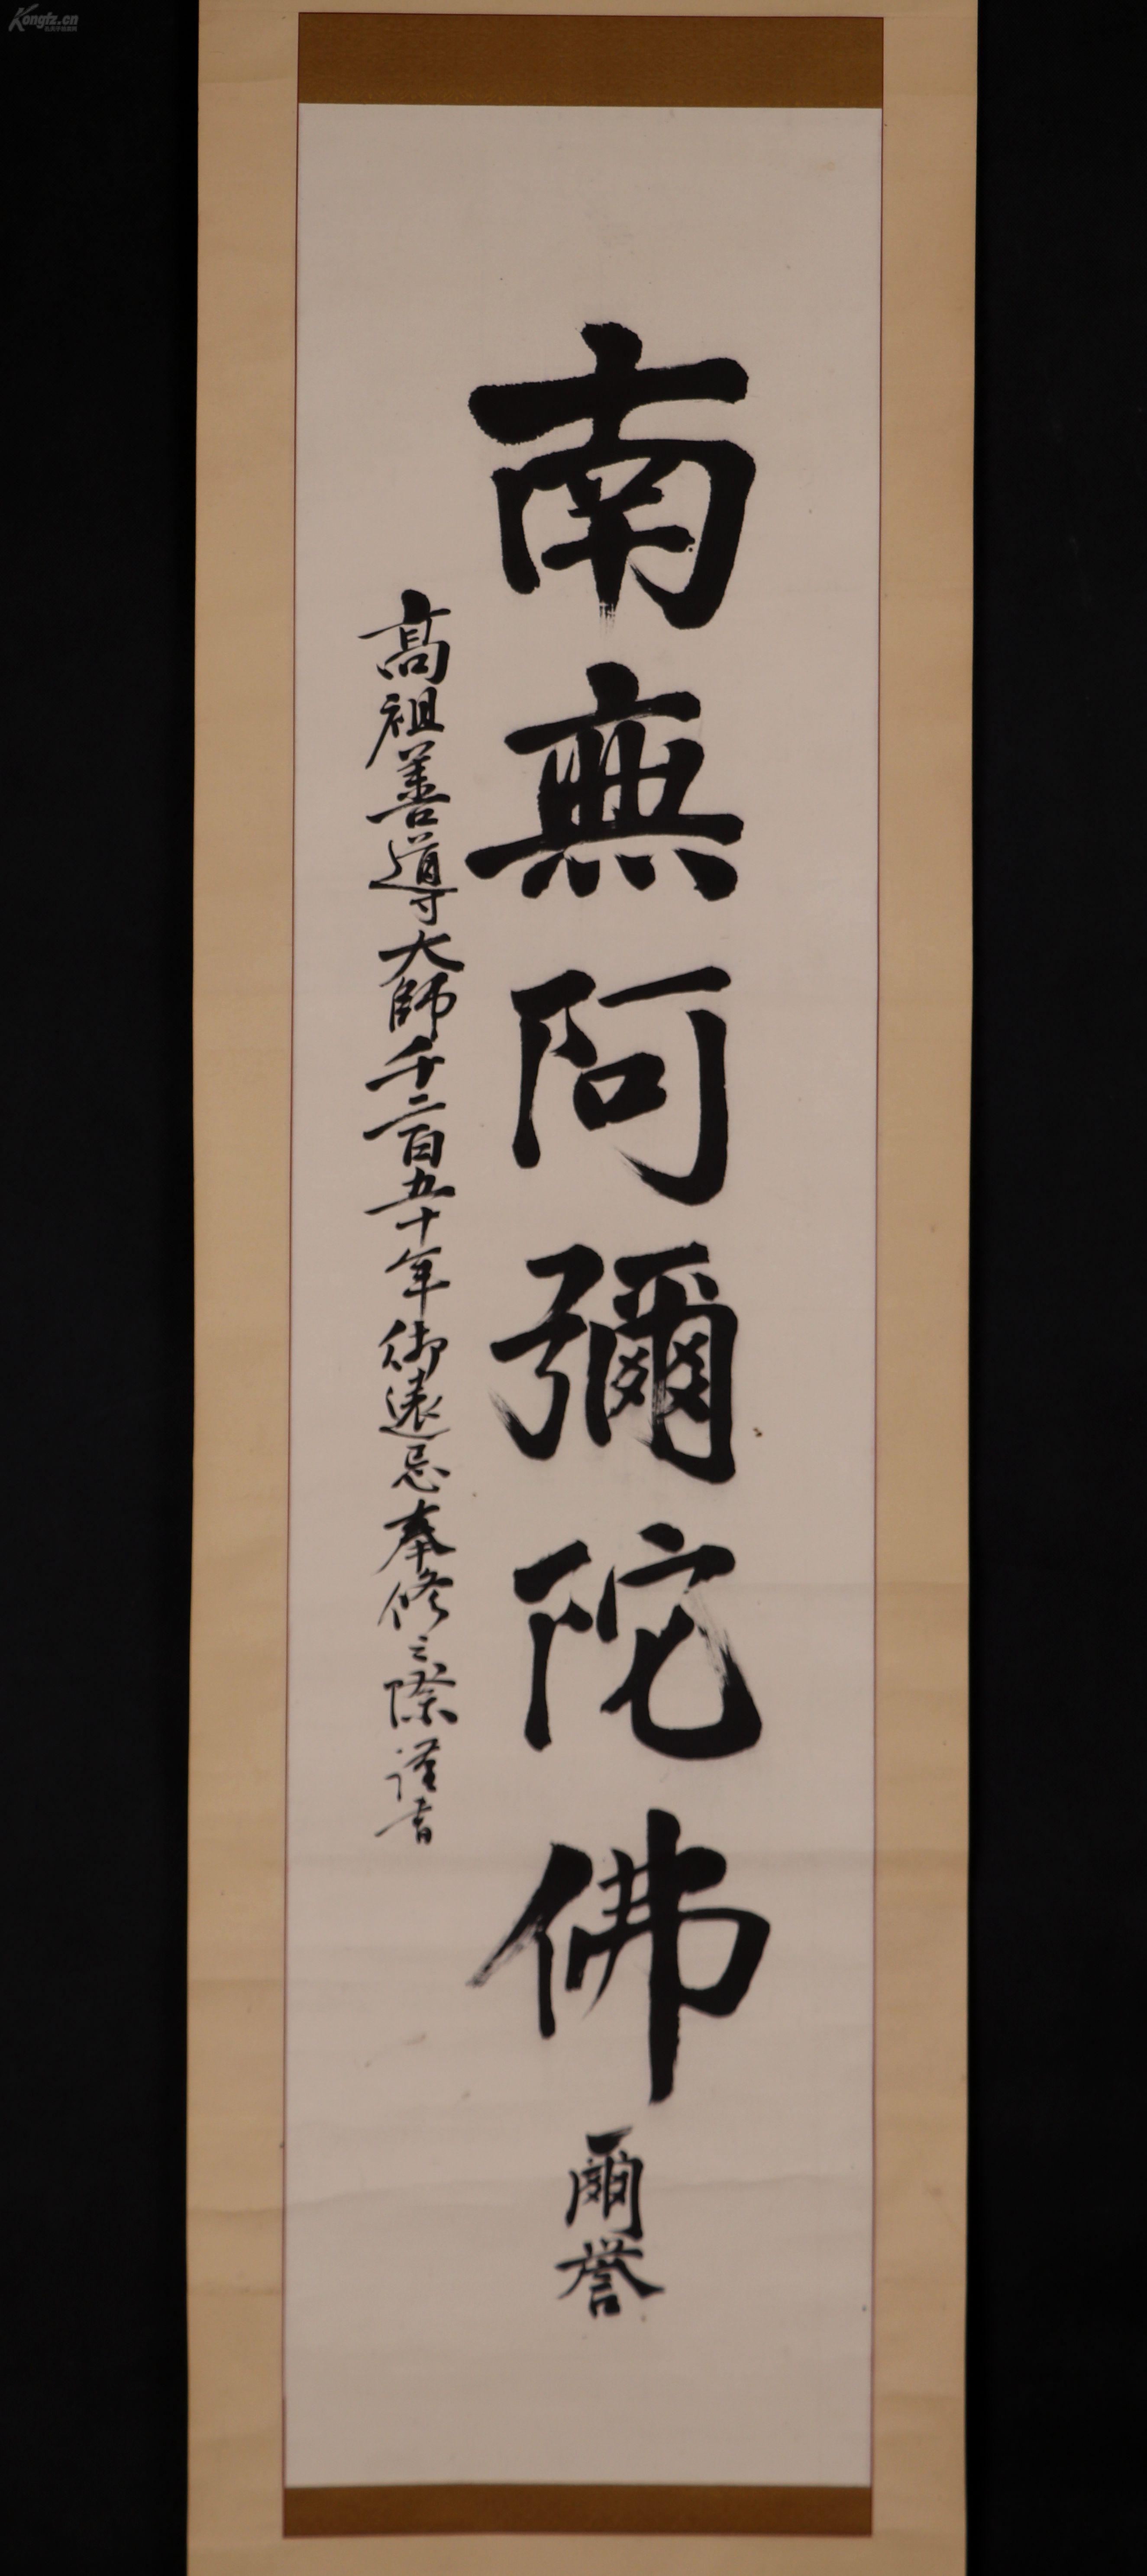 南無阿彌陀佛
爾誉
高祖善導大師千二百五十年御遠忌奉修之際謹書
Kongfz.cn